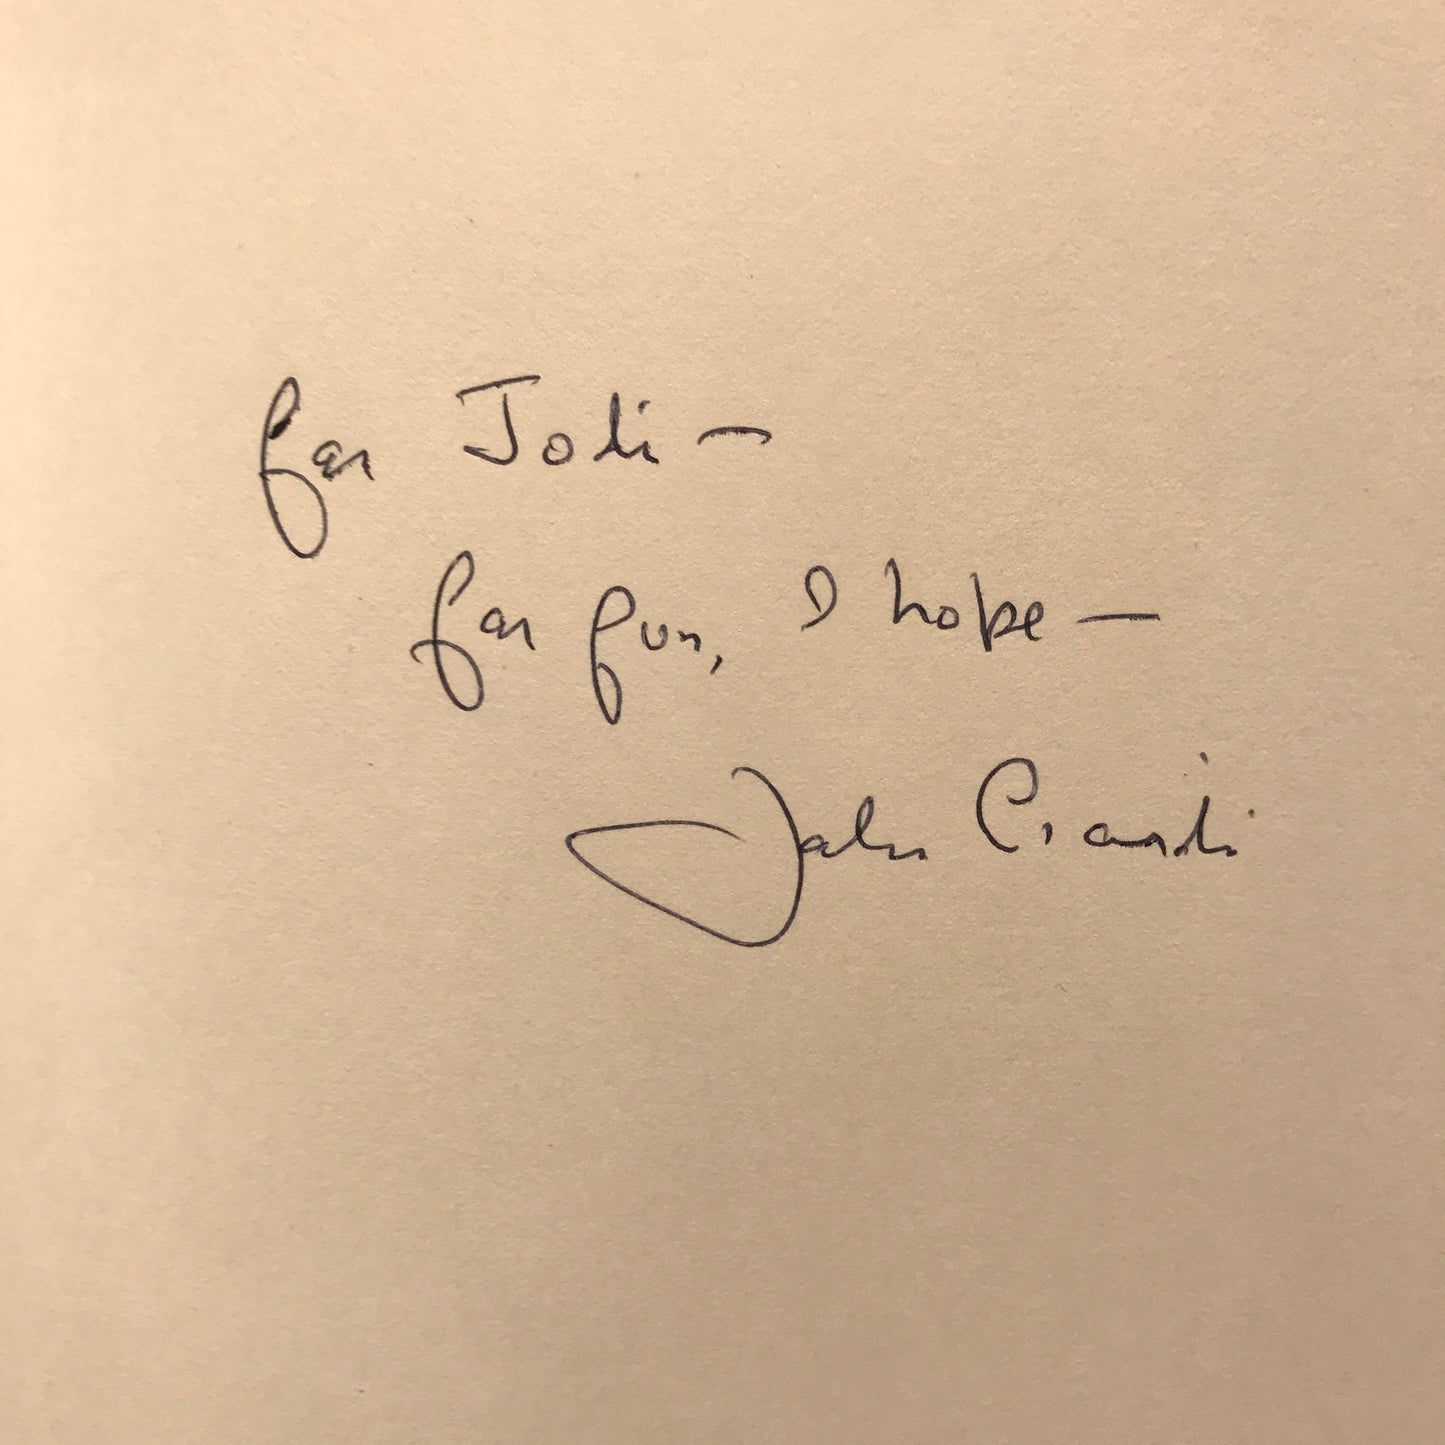 for Jodi —
for fun, I hope —
John Ciardi